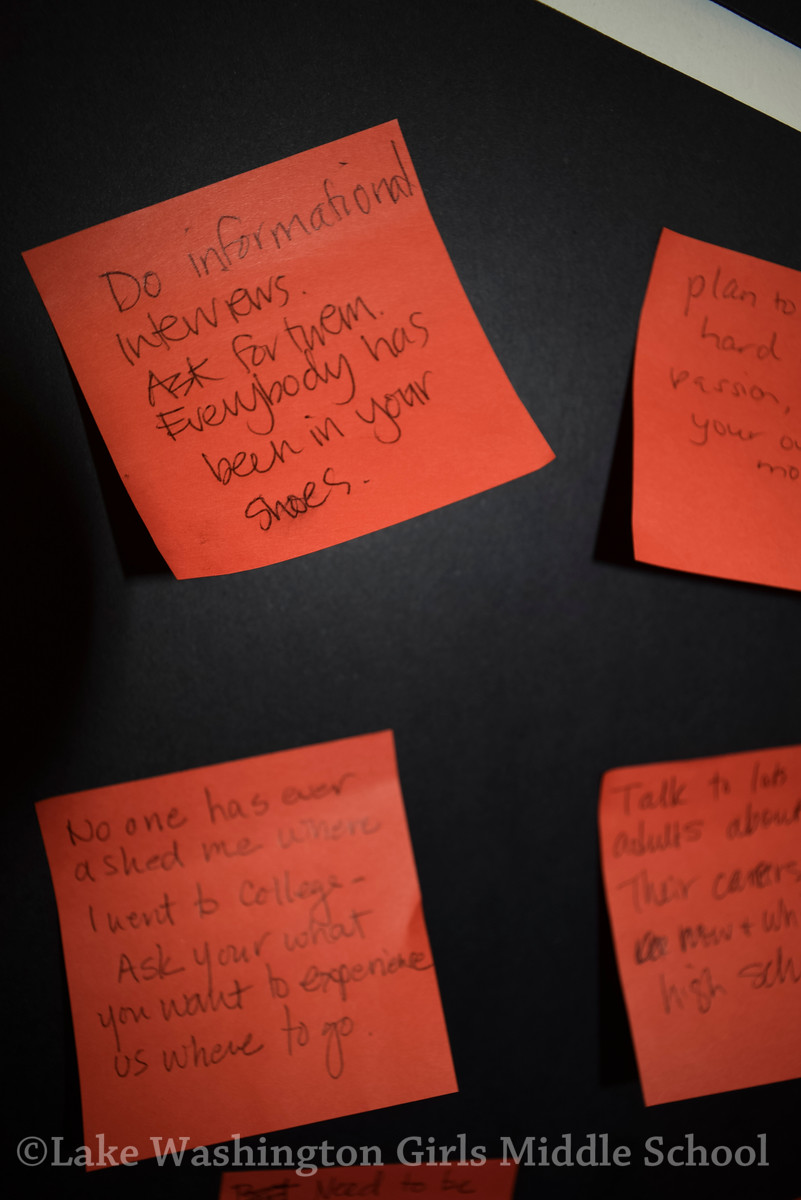 Do informational
interviews.
Ask for them.
Everybody has
been in your
shoes.
plan to
hard
passion,
your
No one has ever
asked me where
I went to college-
Ask your what
you want to experience
us where to go.
Talk to lots
adults about
Their careers
high
Need to be
©Lake Washington Girls Middle School